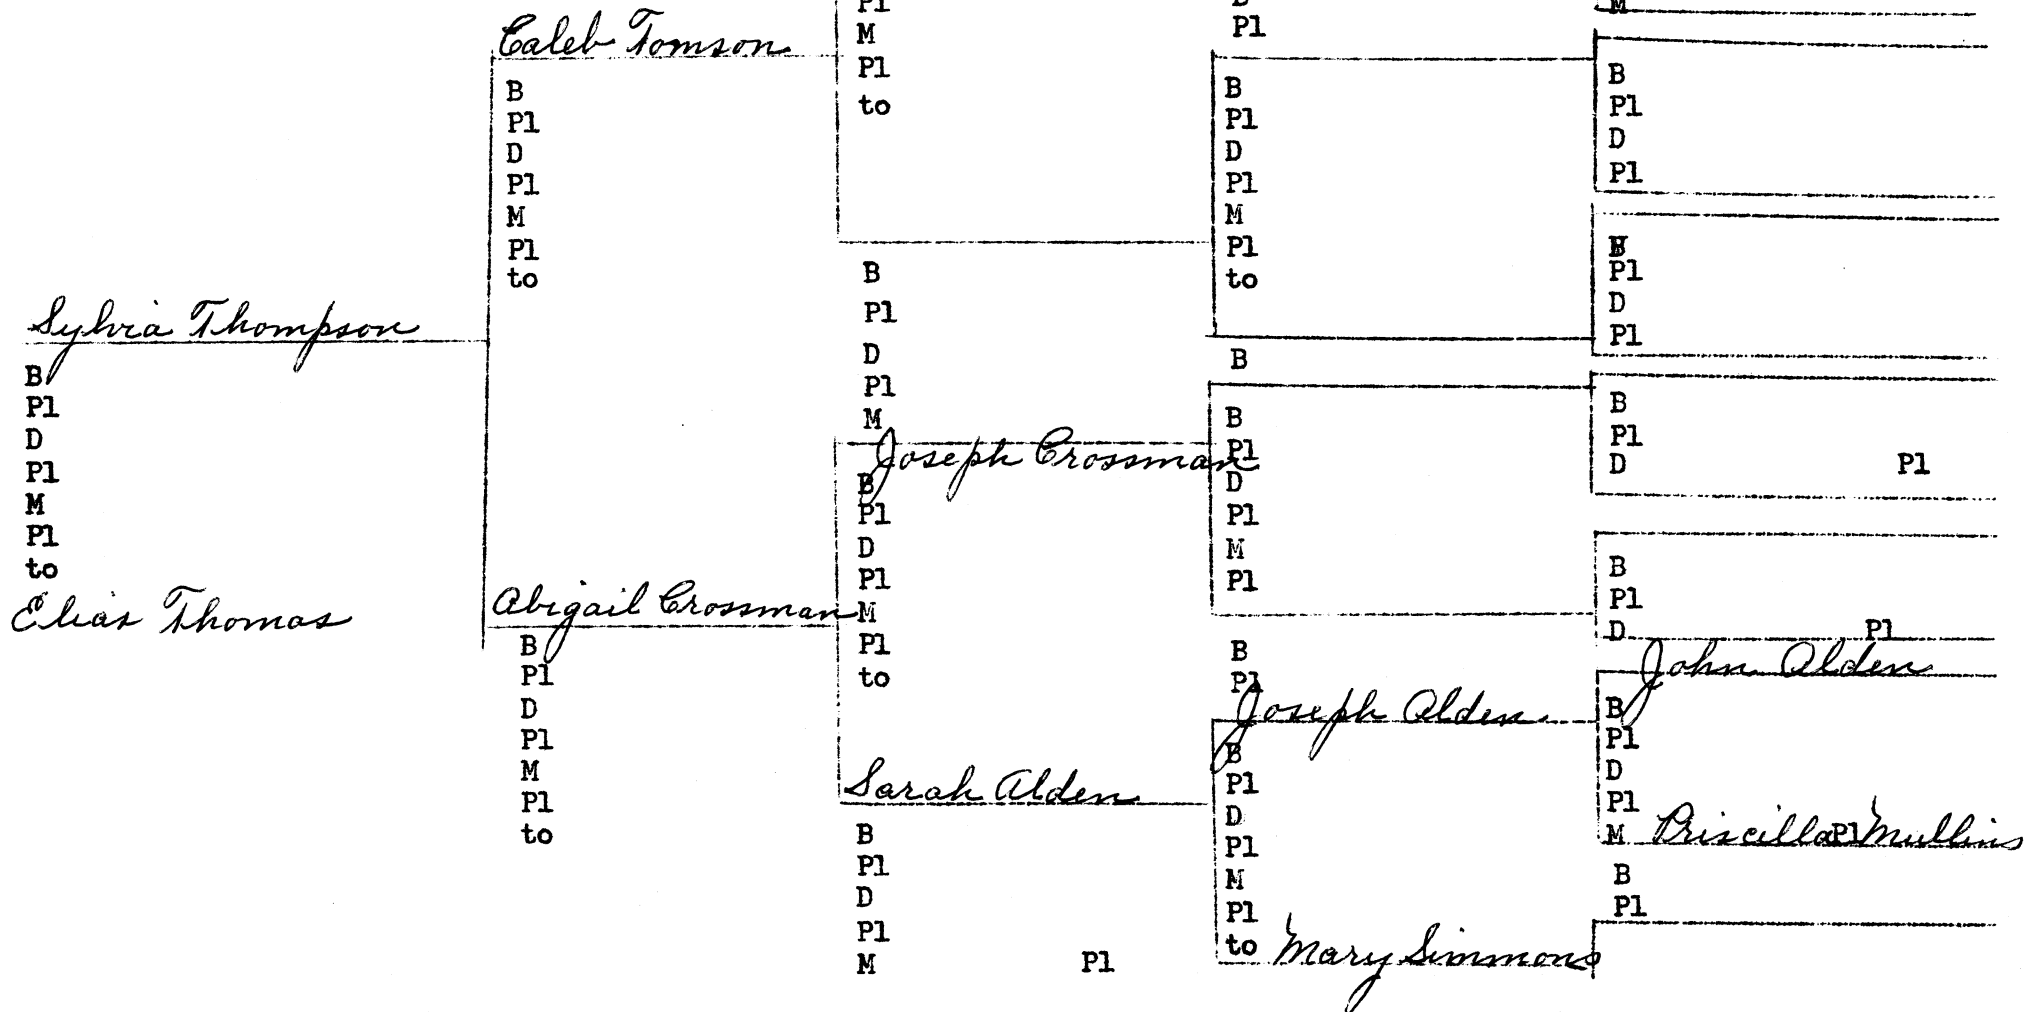 Caleb Tomson
B
Pl
D
Pl
M
Pl
to
Sylvia Thompson
B
Pl
D
Pl
M
Pl
to
Elias Thomas
Abigail Crossman
B
Pl
D
Pl
M
Pl
to
Pl
M
Pl
to
B
Pl
D
Pl
M
Joseph Crossman
B
Pl
D
Pl
M
Pl
to
Sarah Alden
B
Pl
D
Pl
M Pl
B
Pl
B
Pl
D
Pl
M
Pl
to
B
B
Pl
D
Pl
M
Pl
B
Pl
Joseph Alden
B
Pl
D
Pl
M
Pl
to Mary Simmons
M
B
Pl
D
Pl
Pl
D
Pl
B
Pl
D Pl
B
Pl
D Pl
John Alden
B
Pl
D
Pl
M Priscilla Pl Mullins
B
Pl